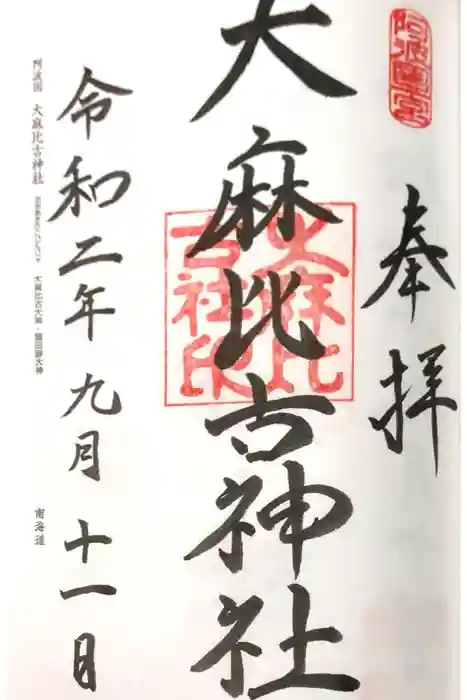 阿波國一宮
奉拝
大麻比古神社
大麻比古社印
令和二年九月十一日
阿波國 大麻比古神社 大麻比古大神・猿田彦大神 南海道